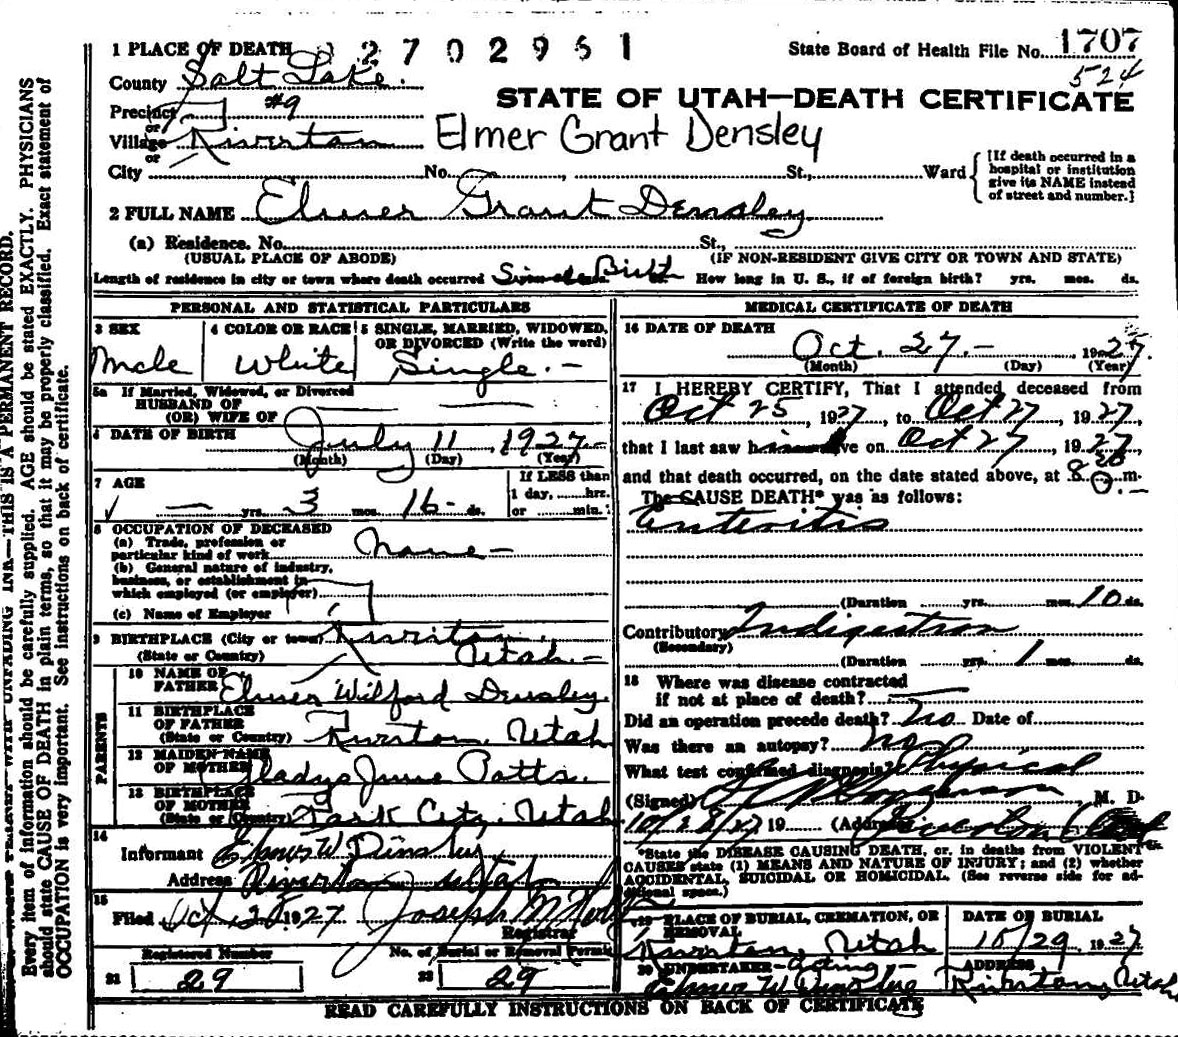 1 PLACE OF DEATH 2702961 State Board of Health File No. 1707
524
County Salt Lake.
STATE OF UTAH—DEATH CERTIFICATE
Precinct #9
or
Village Riverton Elmer Grant Densley
or
City No. , St., Ward {[If death occurred in a hospital or institution give its NAME instead of street and number.]
2 FULL NAME Elmer Grant Densley
(a) Residence. No. St.,
(USUAL PLACE OF ABODE) (IF NON-RESIDENT GIVE CITY OR TOWN AND STATE)
Length of residence in city or town where death occurred Since Birth ds. How long in U. S., if of foreign birth? yrs. mos. ds.
PERSONAL AND STATISTICAL PARTICULARS
3 SEX 4 COLOR OR RACE 5 SINGLE, MARRIED, WIDOWED,
OR DIVORCED (Write the word)
Male White Single.—
5a If Married, Widowed, or Divorced
HUSBAND OF
(OR) WIFE OF
6 DATE OF BIRTH July 11, 1927—
(Month) (Day) (Year)
7 AGE If LESS than
1 day, hrs.
— yrs. 3 mos. 16- ds. or min.
8 OCCUPATION OF DECEASED
(a) Trade, profession or
particular kind of work None—
(b) General nature of industry,
business, or establishment in
which employed (or employer)
(c) Name of Employer
9 BIRTHPLACE (City or town) Riverton,
(State or Country) Utah.—
PARENTS
10 NAME OF
FATHER Elmer Wilford Densley.
11 BIRTHPLACE
OF FATHER
(State or Country) Riverton, Utah
12 MAIDEN NAME
OF MOTHER Gladys June Potts.
13 BIRTHPLACE
OF MOTHER
(State or Country) Park City, Utah
14
Informant Elmer W Densley,
Address Riverton Utah
15
Filed Oct 28, 1927 Joseph M
Registrar
Registered Number No. of Burial or Removal Permit
21 29 22 29
MEDICAL CERTIFICATE OF DEATH
16 DATE OF DEATH
Oct. 27.— 1927.
(Month) (Day) (Year)
17 I HEREBY CERTIFY, That I attended deceased from
Oct 25, 1927, to Oct 27, 1927,
that I last saw him alive on Oct 27, 1927,
and that death occurred, on the date stated above, at 8 m.
The CAUSE DEATH* was as follows:
Enteritis
(Duration yrs. mos. 10 ds.
Contributory Indigestion
(Secondary)
(Duration yrs. 1 mos. ds.
18 Where was disease contracted
if not at place of death?
Did an operation precede death? No Date of
Was there an autopsy? No
What test confirmed diagnosis? Physical
(Signed) M. D.
10/28/27 19 (Address) Riverton Utah
*State the DISEASE CAUSING DEATH, or, in deaths from VIOLENT
CAUSES state (1) MEANS AND NATURE OF INJURY; and (2) whether
ACCIDENTAL, SUICIDAL OR HOMICIDAL. (See reverse side for ad-
ditional space.)
19 PLACE OF BURIAL, CREMATION, OR REMOVAL DATE OF BURIAL
Riverton, Utah 10/29, 1927
20 UNDERTAKER—Acting— ADDRESS
Elmer W Densley Riverton, Utah
READ CAREFULLY INSTRUCTIONS ON BACK OF CERTIFICATE
THIS IS A PERMANENT RECORD.
Every item of information should be carefully supplied. AGE should be stated EXACTLY. PHYSICIANS
should state CAUSE OF DEATH in plain terms, so that it may be properly classified. Exact statement of
OCCUPATION is very important. See instructions on back of certificate.